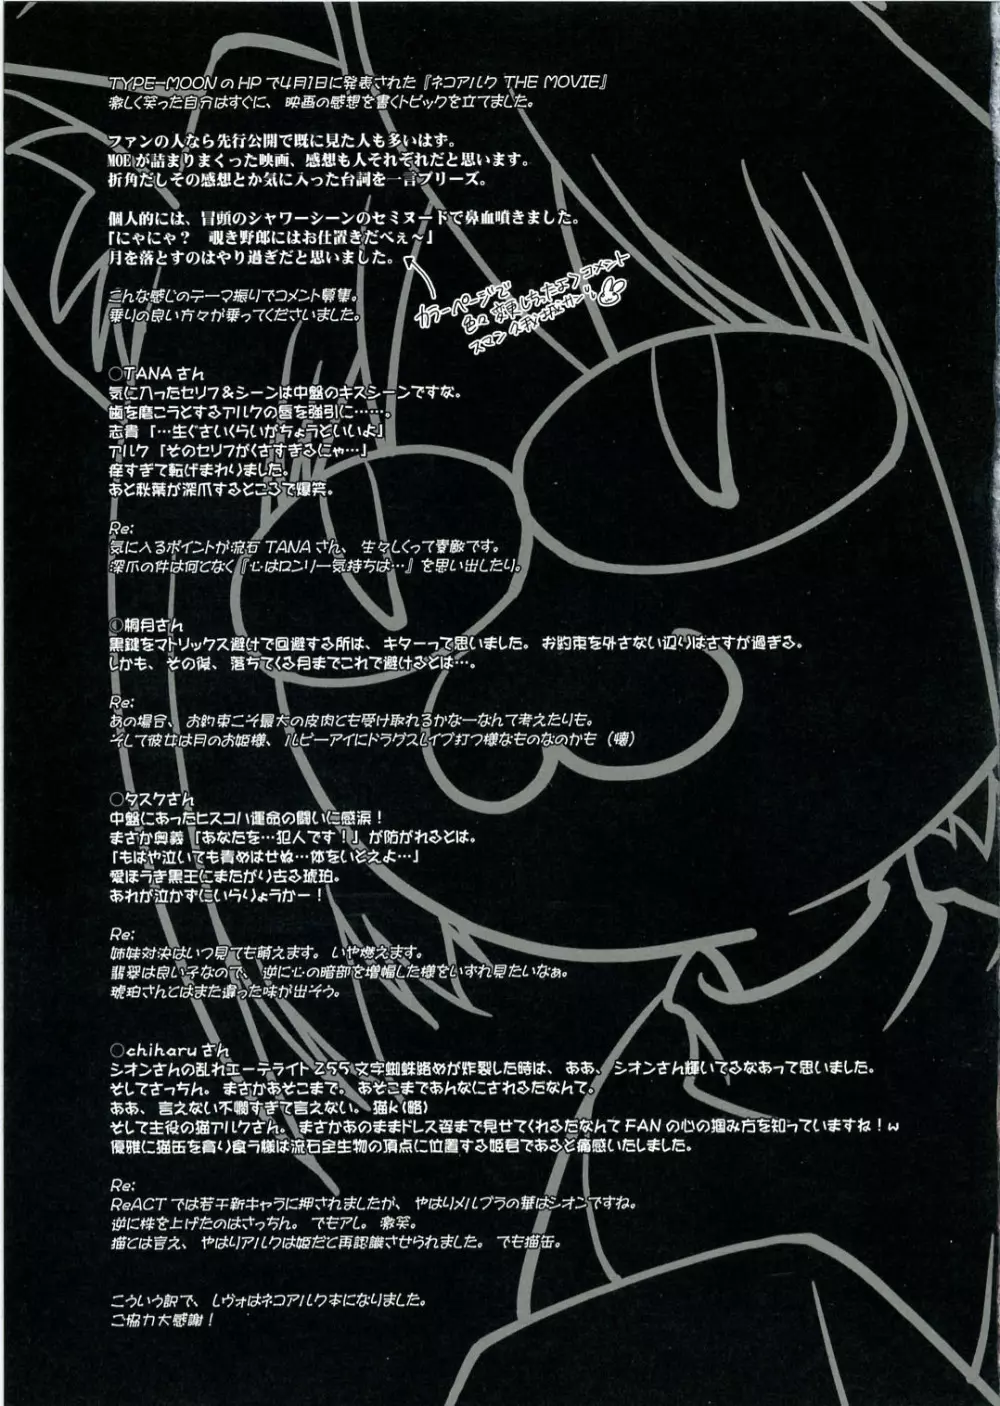 TYPE-MOONのHPで4月1日に発表された『ネコアルク THE MOVIE』
激しく笑った自分はすぐに、映画の感想を書くトピックを立てました。
ファンの人なら先行公開で既に見た人も多いはず。
MOEが詰まりまくった映画、感想も人それぞれだと思います。
折角だしその感想とか気に入った台詞を一言プリーズ。
個人的には、冒頭のシャワーシーンのセミヌードで鼻血噴きました。
「にゃにゃ？　覗き野郎にはお仕置きだべぇ〜」
月を落とすのはやり過ぎだと思いました。
カラーページで
色々変更しちゃったエンコメント
スマン
こんな感じのテーマ振りでコメント募集。
乗りの良い方々が乗ってくださいました。
○TANAさん
気に入ったセリフ＆シーンは中盤のキスシーンですな。
歯を磨こうとするアルクの唇を強引に……。
志貴「…生ぐさいくらいがちょうどいいよ」
アルク「そのセリフがくさすぎるにゃ…」
痒すぎて転げまわりました。
あと秋葉が深爪するところで爆笑。
Re:
気に入るポイントが流石TANAさん、生々しくって素敵です。
深爪の件は何となく『心はロンリー気持ちは…』を思い出したり。
○桐月さん
黒鍵をマトリックス避けで回避する所は、キターって思いました。お約束を外さない辺りはさすが過ぎる。
しかも、その後、落ちてくる月までこれで避けるとは…。
Re:
あの場合、お約束こそ最大の皮肉とも受け取れるかなーなんて考えたりも。
そして彼女は月のお姫様、ルビーアイにドラグスレイブ打つ様なものなのかも（懐）
○タスクさん
中盤にあったヒスコハ運命の闘いに感涙！
まさか奥義「あなたを…犯人です！」が防がれるとは。
「もはや泣いても責めはせぬ…体をいとえよ…」
愛ほうき黒王にまたがり去る琥珀。
あれが泣かずにいらりょうかー！
Re:
姉妹対決はいつ見ても萌えます。いや燃えます。
翡翠は良い子なので、逆に心の暗部を増幅した様をいずれ見たいなぁ。
琥珀さんとはまた違った味が出そう。
○chiharuさん
シオンさんの乱れエーテライト255文字蜘蛛絡めが炸裂した時は、ああ、シオンさん輝いてるなあって思いました。
そしてさっちん。まさかあそこまで。あそこまであんなにされるだなんて。
ああ、言えない不憫すぎて言えない。猫k(略)
そして主役の猫アルクさん。まさかあのままドレス姿まで見せてくれるだなんてFANの心の掴み方を知っていますね！w
優雅に猫缶を貪り食う様は流石全生物の頂点に位置する姫君であると痛感いたしました。
Re:
ReACTでは若干新キャラに押されましたが、やはりメルブラの華はシオンですね。
逆に株を上げたのはさっちん。でもアレ。激笑。
猫とは言え、やはりアルクは姫だと再認識させられました。でも猫缶。
こういう訳で、レヴォはネコアルク本になりました。
ご協力大感謝！